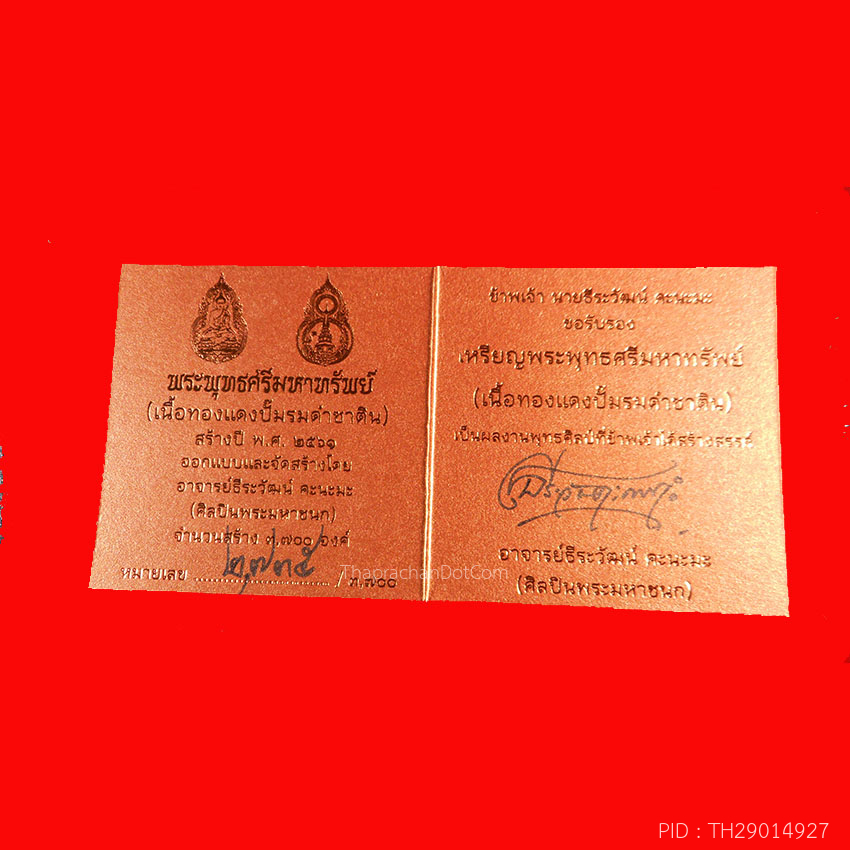 พระพุทธศรีมหาทรัพย์
(เนื้อทองแดงปั๊มรมดำซาติน)
สร้างปี พ.ศ. ๒๕๖๑
ออกแบบและจัดสร้างโดย
อาจารย์ธีระวัฒน์ คะนะมะ
(ศิลปินพระมหาชนก)
จำนวนสร้าง ๓,๗๐๐ องค์
หมายเลข ๒,๗๓๕ / ๓,๗๐๐
ข้าพเจ้า นายธีระวัฒน์ คะนะมะ
ขอรับรอง
เหรียญพระพุทธศรีมหาทรัพย์
(เนื้อทองแดงปั๊มรมดำซาติน)
เป็นผลงานพุทธศิลป์ที่ข้าพเจ้าได้สร้างสรรค์
อาจารย์ธีระวัฒน์ คะนะมะ
(ศิลปินพระมหาชนก)
ThaprachanDotCom
PID : TH29014927